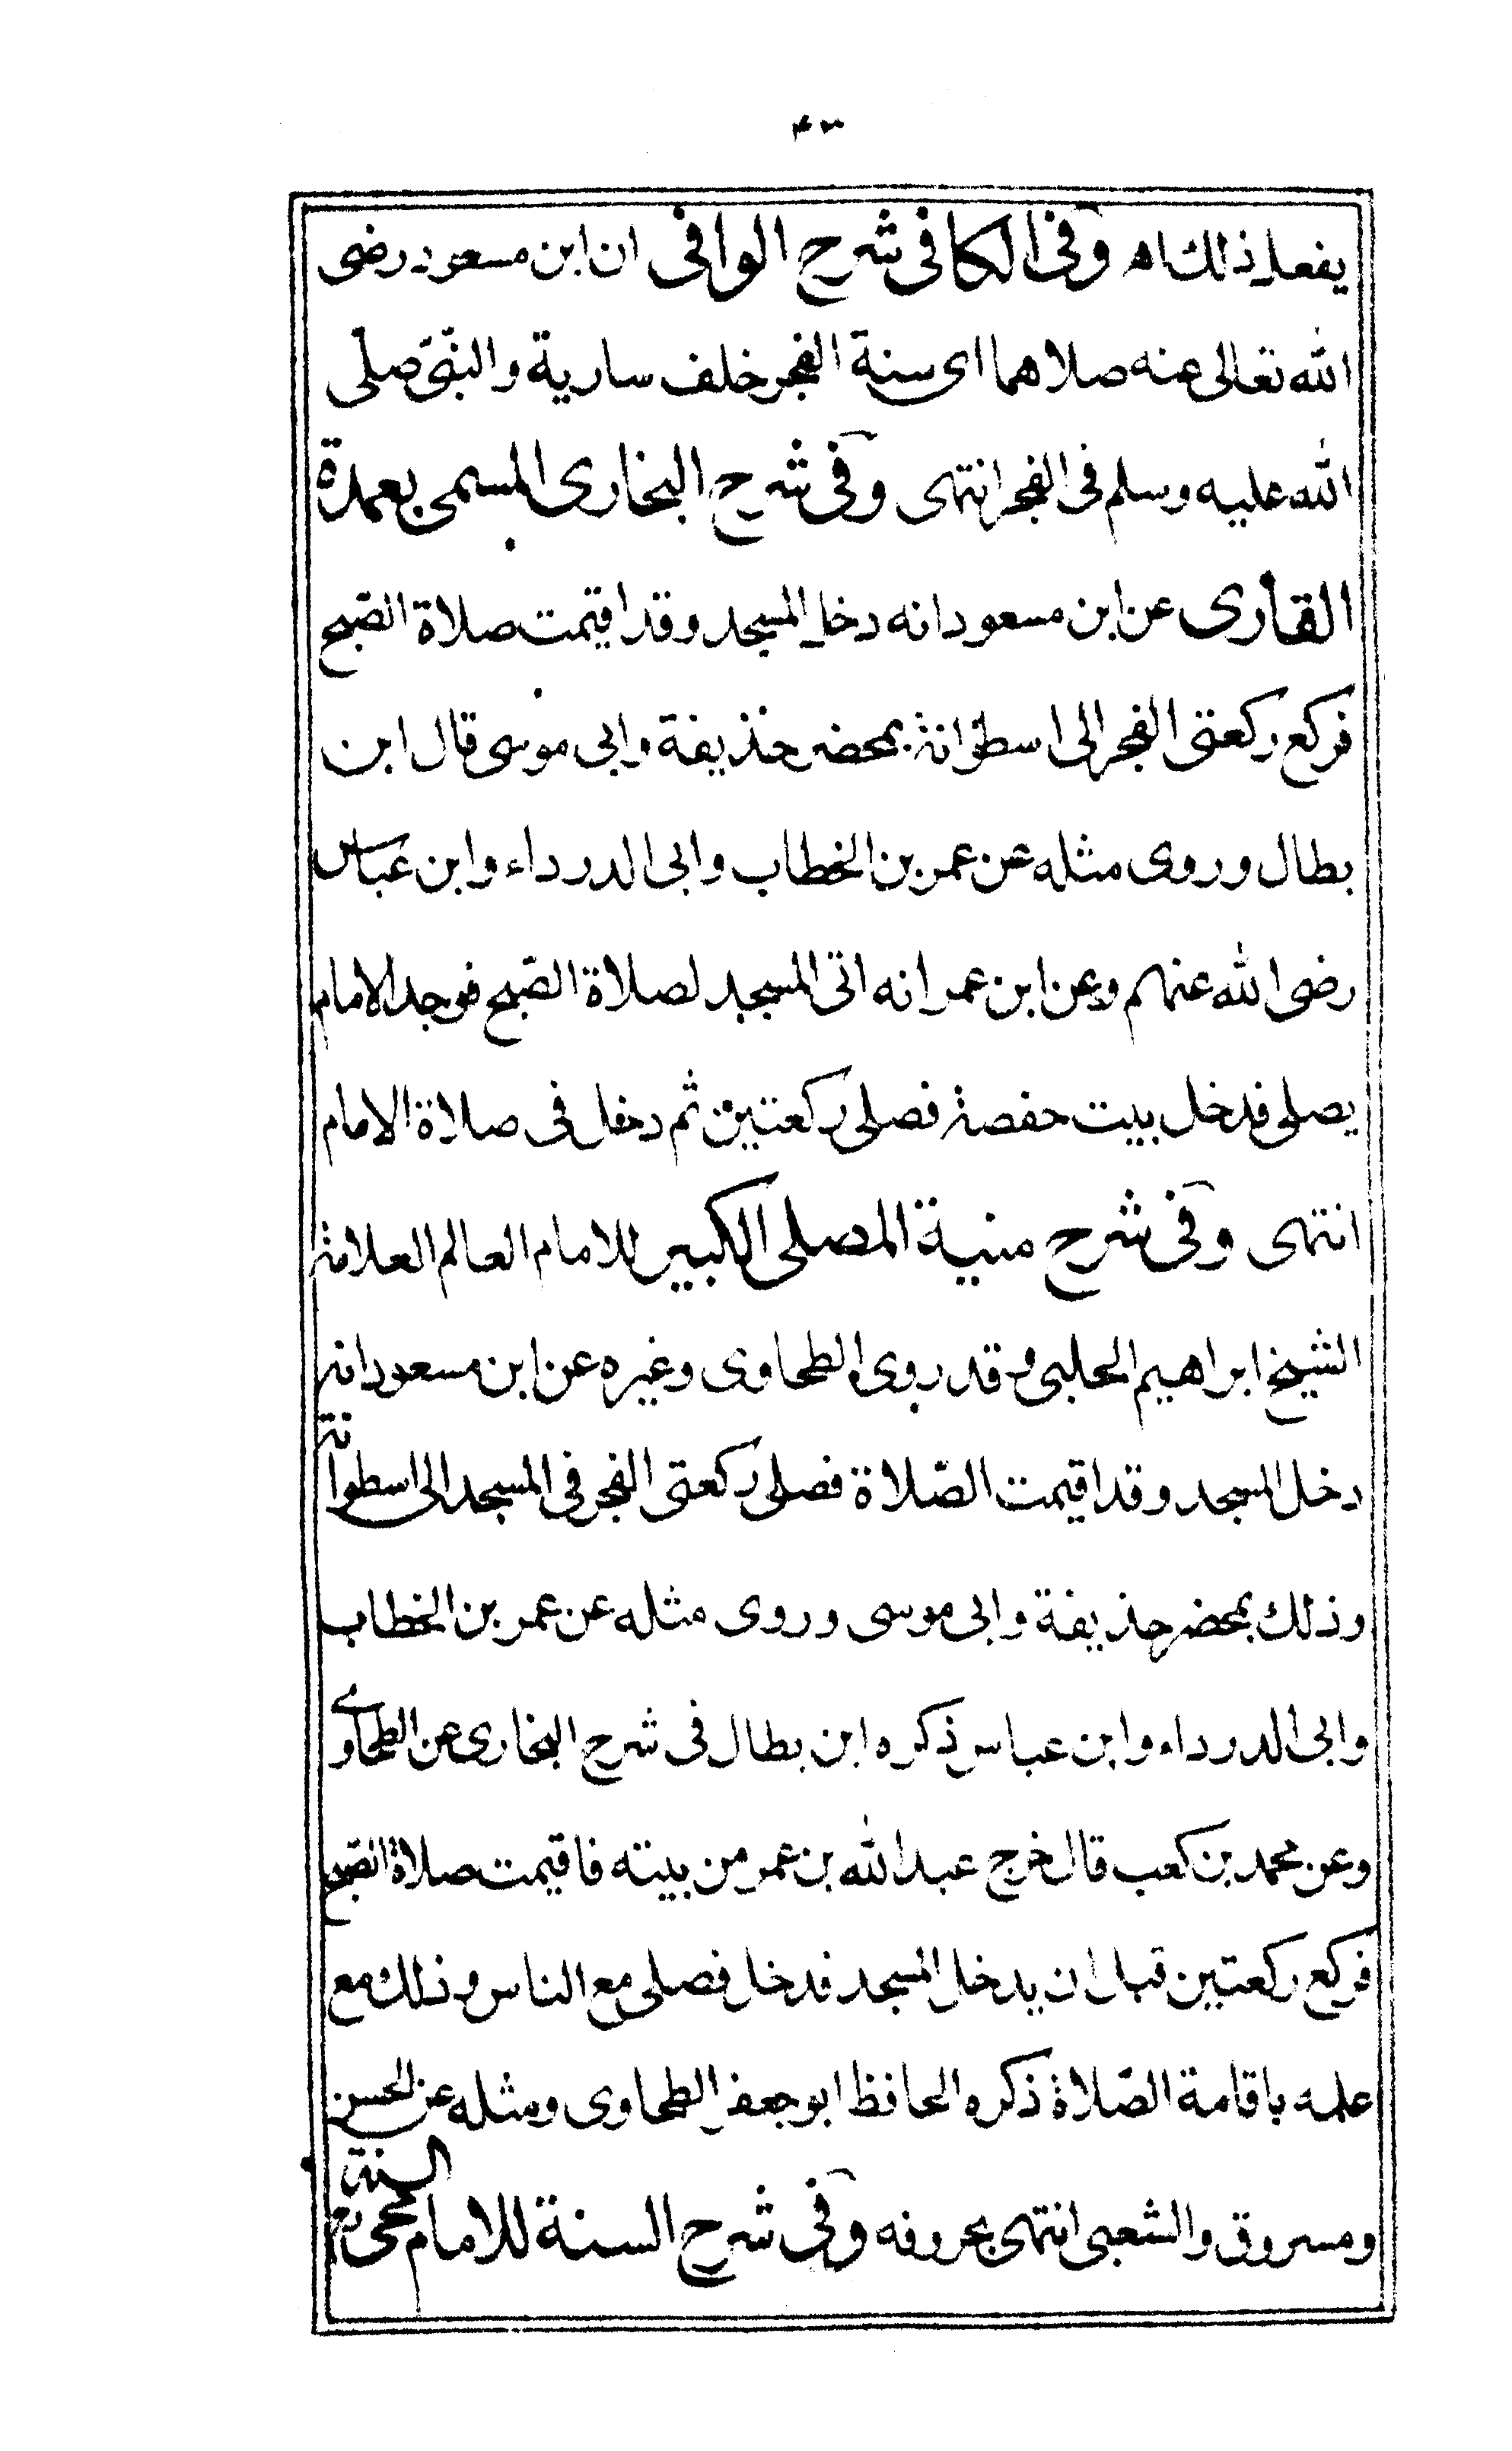 يفعل ذلك اه وفى الكافى شرح الوافى ان ابن مسعود رضى
الله تعالى عنه صلاهما اى سنة الفجر خلف سارية والنبىّ صلّى
الله عليه وسلم فى الفجر انتهى وفى شرح البخارى المسمى بعمدة
القارى عن ابن مسعود انه دخل المسجد وقد اقيمت صلاة الصّبح
فركع ركعتى الفجر الى اسطوانة بمحضر حذيفة وابى موسى قال ابن
بطال وروى مثله عن عمر بن الخطاب وابى الدرداء وابن عباس
رضى الله عنهم وعن ابن عمر انه اتى المسجد لصلاة الصّبح فوجد الامام
يصلى فدخل بيت حفصة فصلى ركعتين ثم دخل فى صلاة الامام
انتهى وفى شرح منية المصلى الكبير للامام العالم العلامة
الشيخ ابراهيم الحلبى وقد روى الطحاوى وغيره عن ابن مسعود انه
دخل المسجد وقد اقيمت الصّلاة فصلى ركعتى الفجر فى المسجد الى اسطوانة
وذلك بمحضر حذيفة وابى موسى وروى مثله عن عمر بن الخطاب
وابى الدرداء وابن عباس ذكره ابن بطال فى شرح البخارى عن الطحاوى
وعن محمد بن كعب قال خرج عبد الله بن عمر من بيته فاقيمت صلاة الصّبح
فركع ركعتين قبل ان يدخل المسجد فدخل فصلى مع الناس وذلك مع
علمه باقامة الصّلاة ذكره الحافظ ابو جعفر الطحاوى ومثله عن الحسن
ومسروق والشعبى انتهى بحروفه وفى شرح السنة للامام محى السنة